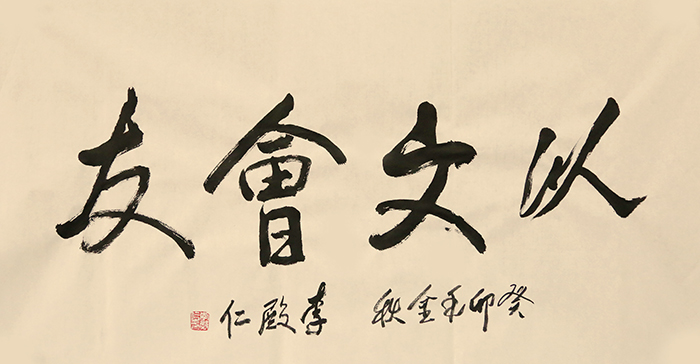 以文會友
癸卯年金秋 李殿仁